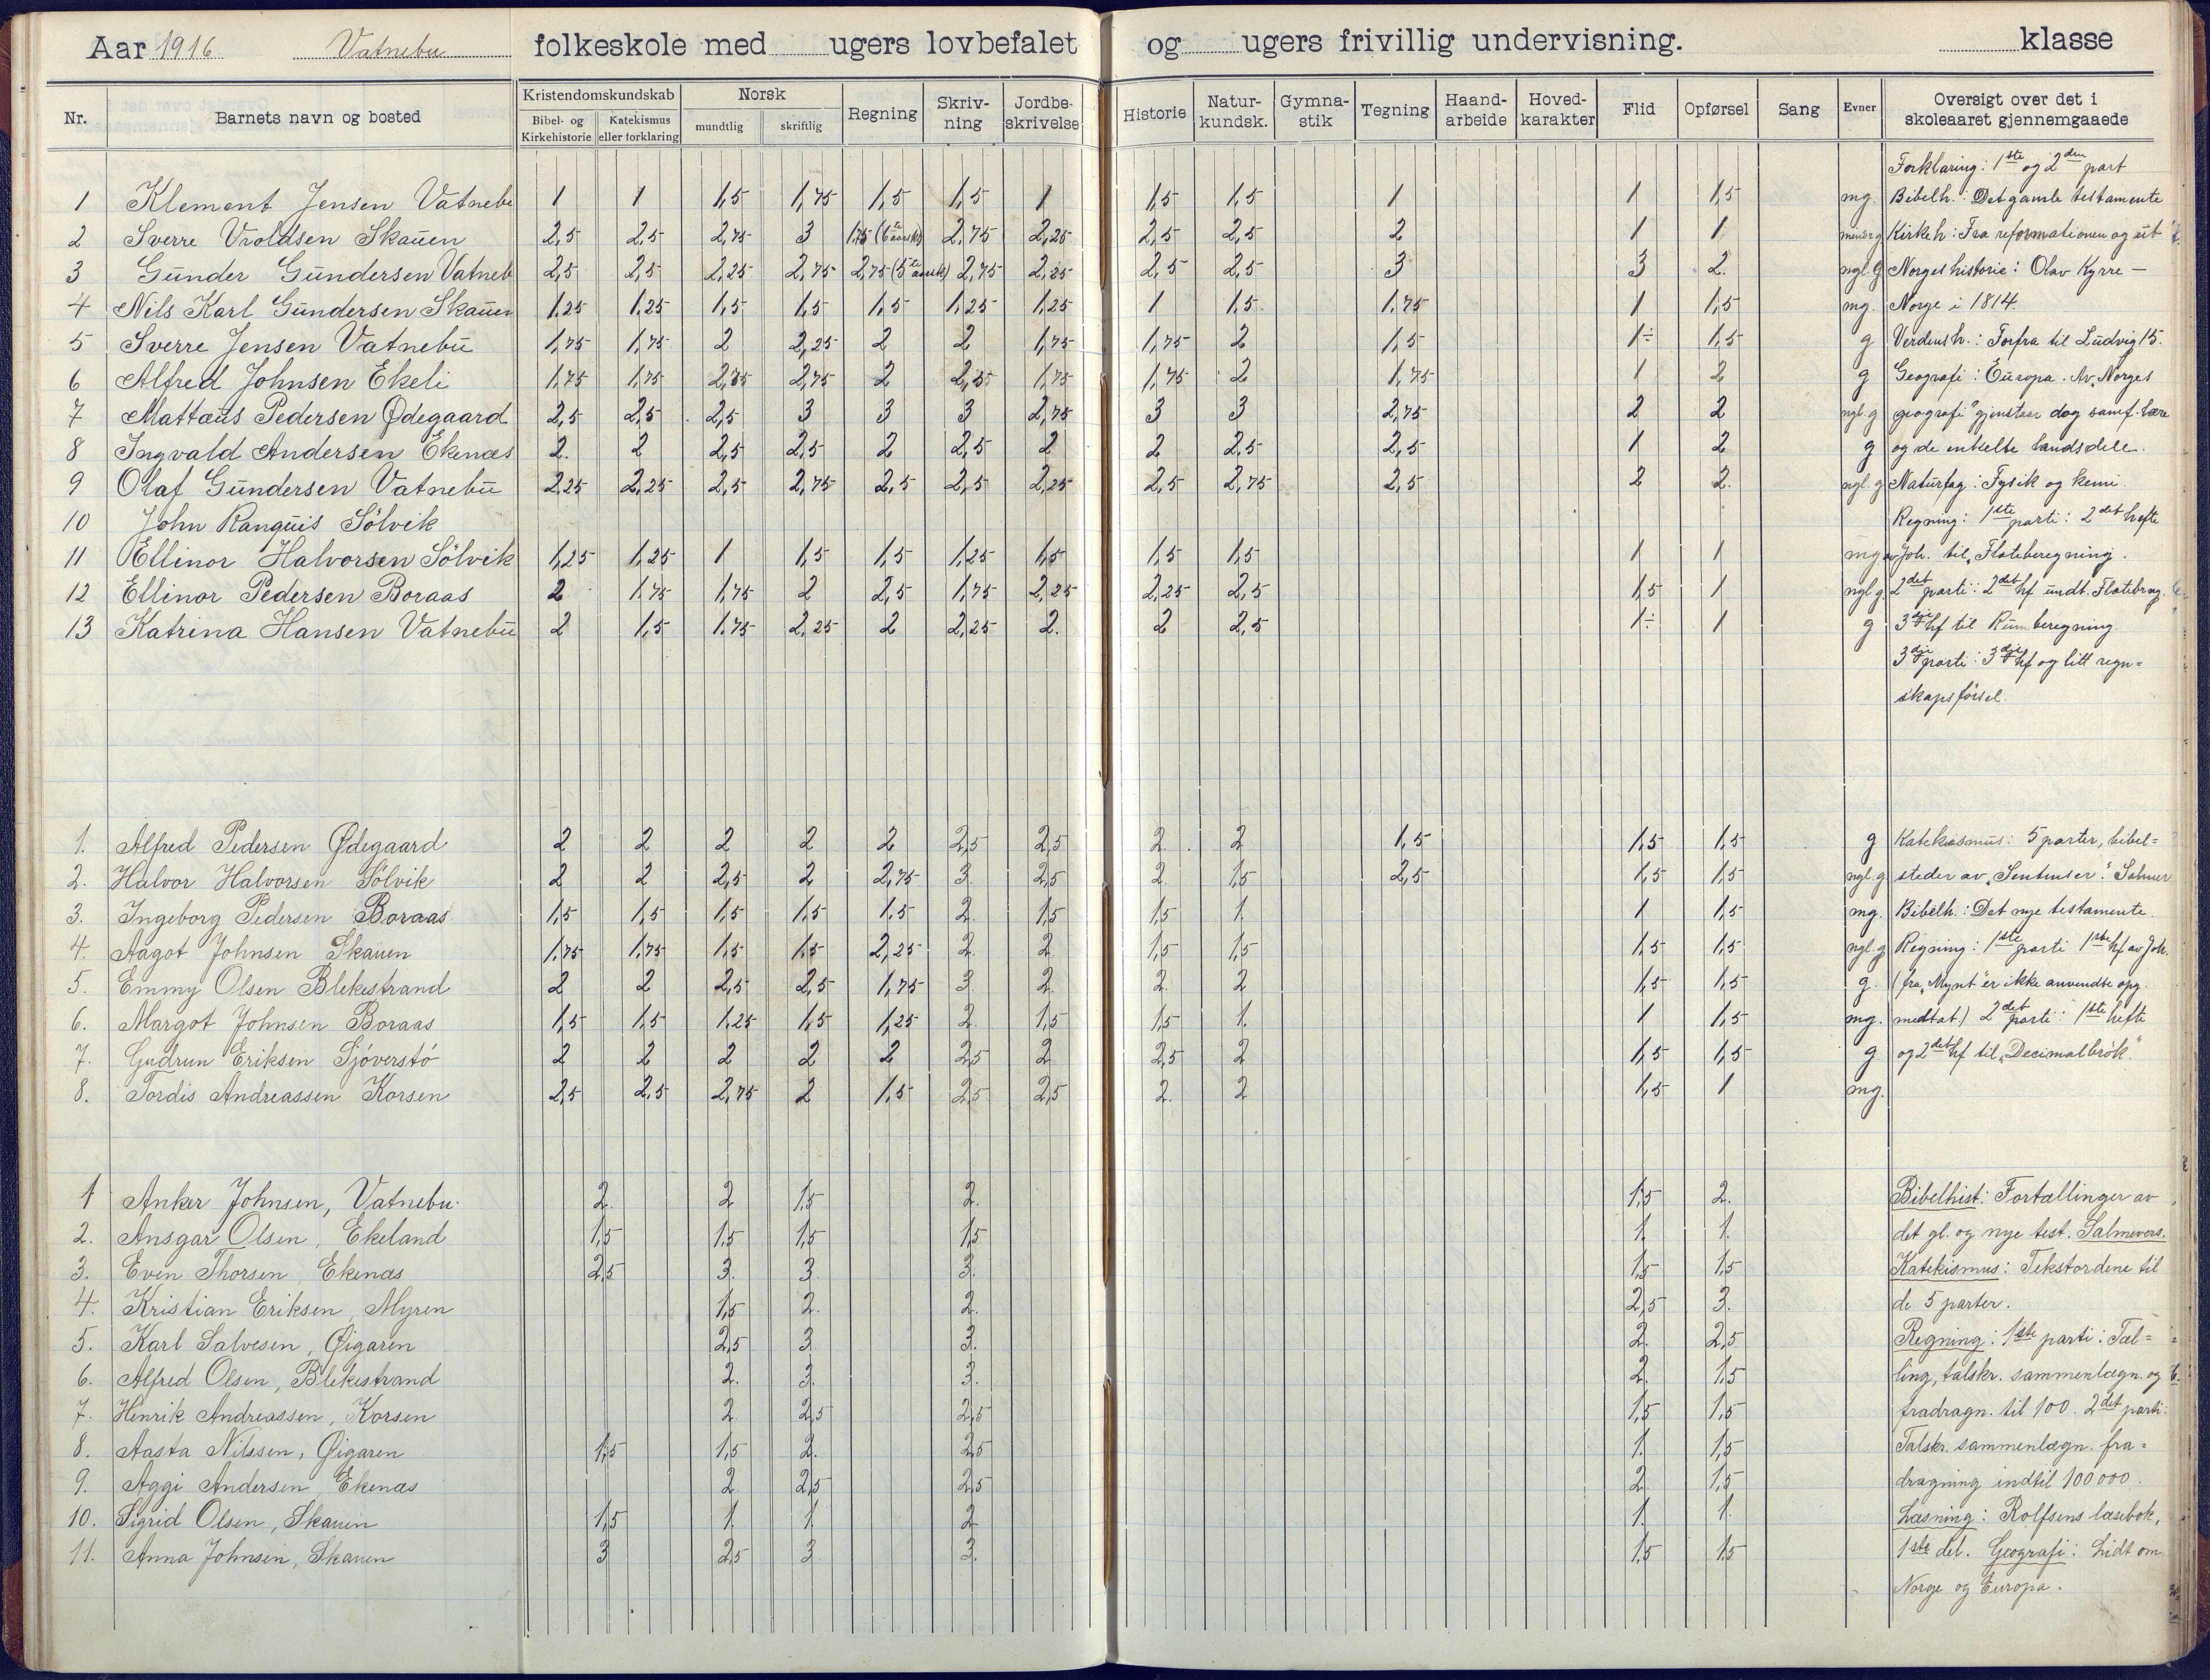 Aar 1916 Vatnebu folkeskole med ugers lovbefalet og ugers frivillig undervisning. klasse
Nr. Barnets navn og bosted Kristendomskundskab Bibel- og Kirkehistorie Katekismus eller forklaring Norsk mundtlig skriftlig Regning Skriv-ning Jordbe-skrivelse Historie Natur-kundsk. Gymna-stik Tegning Haand-arbeide Hoved-karakter Flid Opførsel Sang Evner Oversigt over det i skoleaaret gjennemgaaede
Forklaring: 1ste og 2den part
1 Klement Jensen Vatnebu 1 1 1,5 1,75 1,5 1,5 1 1,5 1,5 1 1 1,5 mg. Bibelh.: Det gamle testamente
2 Sverre Vroldsen Skauen 2,5 2,5 2,75 3 1,75 (6te aarsk) 2,75 2,25 2,5 2,5 2 1 1 g Kirkeh: Fra reformationen og ut
3 Gunder Gundersen Vatneb 2,5 2,5 2,25 2,75 2,75 (5te aarsk) 2,75 2,25 2,5 2,5 3 3 2. ngl. g Norgeshistorie: Olav Kyrre —
4 Nils Karl Gundersen Skauen 1,25 1,25 1,5 1,5 1,5 1,25 1,25 1 1,5 1,75 1 1,5 mg. Norge i 1814.
5 Sverre Jensen Vatnebu 1,75 1,75 2 2,25 2 2 1,75 1,75 2 1,5 1÷ 1,5 g Verdensh.: Forfra til Ludvig 15.
6 Alfred Johnsen Ekeli 1,75 1,75 2,25 2,75 2 2,25 1,75 1,75 2 1,75 1 2 g Geografi: Europa. Av „Norges
7 Mattæus Pedersen Ødegaard 2,5 2,5 2,5 3 3 3 2,75 3 3 2,75 2 2 ngl. g geografi" gjenstaar dog samf. lære
8 Ingvald Andersen Ekenæs 2. 2 2,5 2,5 2 2,5 2 2 2,5 2,5 1 2 g og de enkelte landsdele.
9 Olaf Gundersen Vatnebu 2,25 2,25 2,5 2,75 2,5 2,5 2,25 2,5 2,75 2,5 2 2. ngl. g Naturfag: Fysik og kemi.
10 John Ranquis Sölvik Regning: 1ste parti: 2det hefte
11 Ellinor Halvorsen Sölvik 1,25 1,25 1 1,5 1,5 1,25 1,5 1,5 1,5 1 1 mg av Joh. til „Flateberegning.
12 Ellinor Pedersen Boraas 2 1,75 1,75 2 2,5 1,75 2,25 2,25 2,5 1,5 1 ngl g. 2det parti: 2det hf undt. Flatebreg.
13 Katrina Hansen Vatnebu 2 1,5 1,75 2,25 2 2,25 2. 2 2,5 1÷ 1 g 3dje hf til Rumberegning.
3dje parti: 3dje hf og litt regn=
skapsförsel.
1. Alfred Pedersen Ødegaard 2 2 2 2 2 2,5 2,5 2. 2 1,5 1,5 1,5 g Katekismus: 5 parter, bibel=
2. Halvor Halvorsen Sölvik 2 2 2,5 2 2,75 3. 2,5 2. 1,5 2,5 1,5 1,5 ngl. g steder av „Sentenser". Salmer
3. Ingeborg Pedersen Boraas 1,5 1,5 1,5 1,5 1,5 2. 1,5 1,5 1. 1 1,5 mg. Bibelh.: Det nye testamente.
4. Aagot Johnsen Skauen 1,75 1,75 1,5 1,5 2,25 2. 2 1,5 1,5 1,5 1,5 ngl. g Regning: 1ste parti 1ste hf av Joh.
5. Emmy Olsen Blekestrand 2 2 2,5 2,5 1,75 3. 2. 2. 2 1,5 1,5 g. (fra „Mynt" er ikke anvendte opg.
6. Margot Johnsen Boraas 1,5 1,5 1,25 1,5 1,25 2. 1,5 1,5 1. 1 1,5 mg. medtat.) 2det parti: 1ste hefte
7. Gudrun Eriksen Sjöverstö 2 2 2 2 2 2,5 2 2,5 2 1,5 1,5 g. og 2det hf til „Decimalbrök."
8. Tordis Andreassen Korsen 2,5 2,5 2,75 2 1,5 2,5 2,5 2. 2 1,5 1 mg.
1 Anker Johnsen, Vatnebu. 2. 2 1,5 2. 1,5 2. Bibelhist: Fortællinger av
2. Ansgar Olsen, Ekeland 1,5 1,5 1,5 1,5 1. 1. det gl. og nye test. Salmevers.
3. Even Thorsen, Ekenæs 2,5 3. 3. 3. 1,5 1,5 Katekismus: Tekstordene til
4. Kristian Eriksen, Myren 1,5 2. 2. 2,5 3. de 5 parter.
5. Karl Salvesen, Øigaren 2,5 3. 3. 2. 2,5 Regning: 1ste parti: Tæl=
6. Alfred Olsen, Blekestrand 2. 3. 3. 2. 1,5 ling, talskr. sammenlægn. og
7. Henrik Andreassen, Korsen 2. 2,5 2,5 1,5 1,5 fradragn. til 100. 2det parti:
8. Aasta Nilssen, Øigaren 1,5 1,5 2. 2,5 1. 1,5 Talskr. sammenlægn. fra=
9. Aggi Andersen, Ekenæs 2. 2,5 2,5 2. 1,5 dragning indtil 100 000.
10. Sigrid Olsen, Skauen 1,5 1. 1. 2 1. 1. Læsning: Rolfsens læsebok,
11. Anna Johnsen, Skauen 3 2,5 3 3. 1,5 1,5 1ste del. Geografi: Lidt om
Norge og Europa.